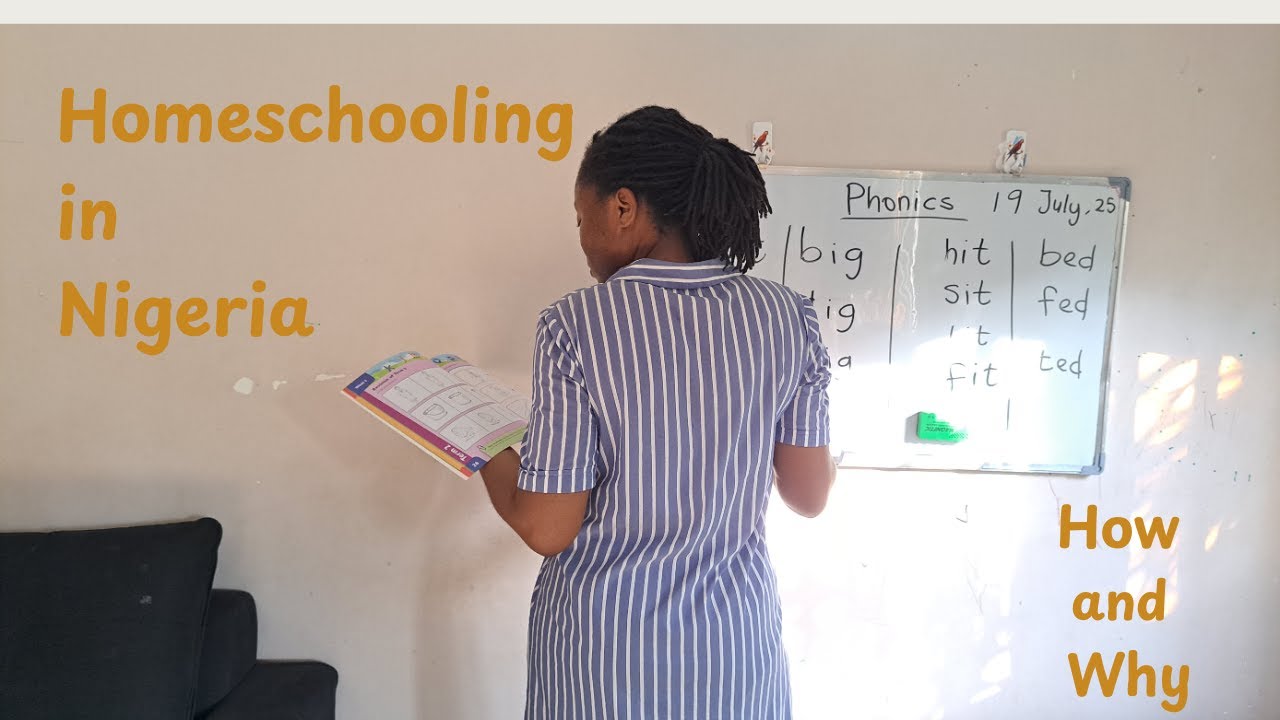 Homeschooling
in
Nigeria
Phonics 19 July, 25
big hit bed
sit fed
fit ted
Term 1
How
and
Why